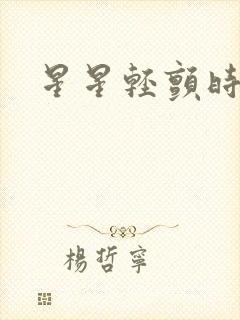 星星輕顫時
楊哲寧